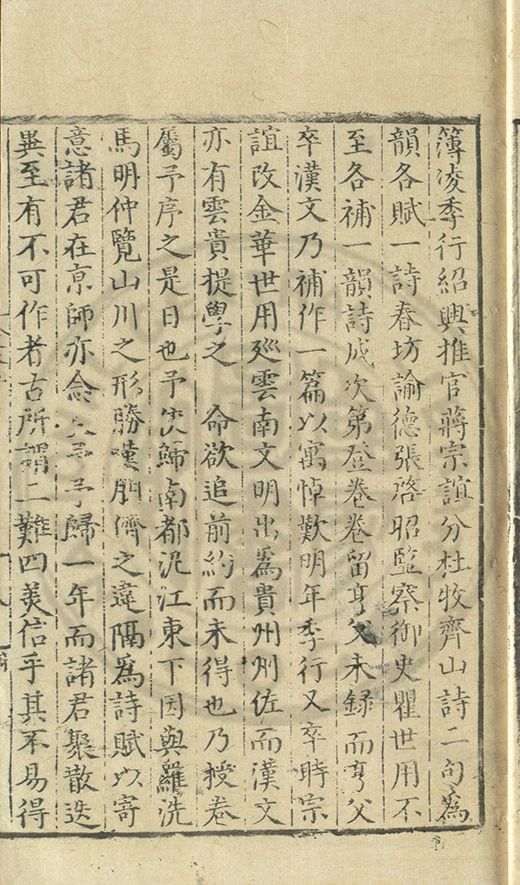 簿凌季行紹興推官蔣宗誼分杜牧齊山詩二句為
韻各賦一詩春坊諭德張啓昭監察御史瞿世用不
至各補一韻詩成次第登卷卷留亨父未録而亨父
卒漢文乃補作一篇以寓悼歎明年季行又卒時宗
誼改金華世用廵雲南文明出為貴州州佐而漢文
亦有雲貴提學之　命欲追前約而未得也乃授卷
屬予序之是日也予実歸南都泥江東下因與羅洗
馬明仲覽山川之形勝嘆朋儕之違隔為詩賦以寄
意諸君在京師亦念予歸一年而諸君聚散迭
異至有不可作者古所謂二難四美信乎其不易得